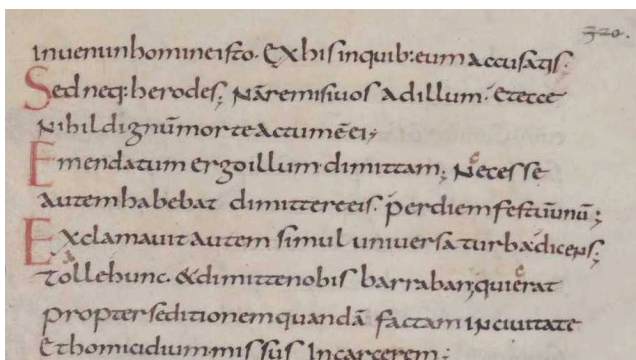 320.
inuenio in homine isto. Ex his in quib: eum accusatis.
Sed neq: herodes; Nā remisi uos ad illum. Et ecce
Nihil dignū morte actum ē ei;
Emendatum ergo illum dimittam; Necesse
autem habebat dimittere eis. per diem festū unū;
Exclamauit autem simul uniuersa turba dicens;
Tolle hunc. & dimitte nobis barraban; qui erat
propter seditionem quandā factam in ciuitate
Et homicidium missus In carcerem;